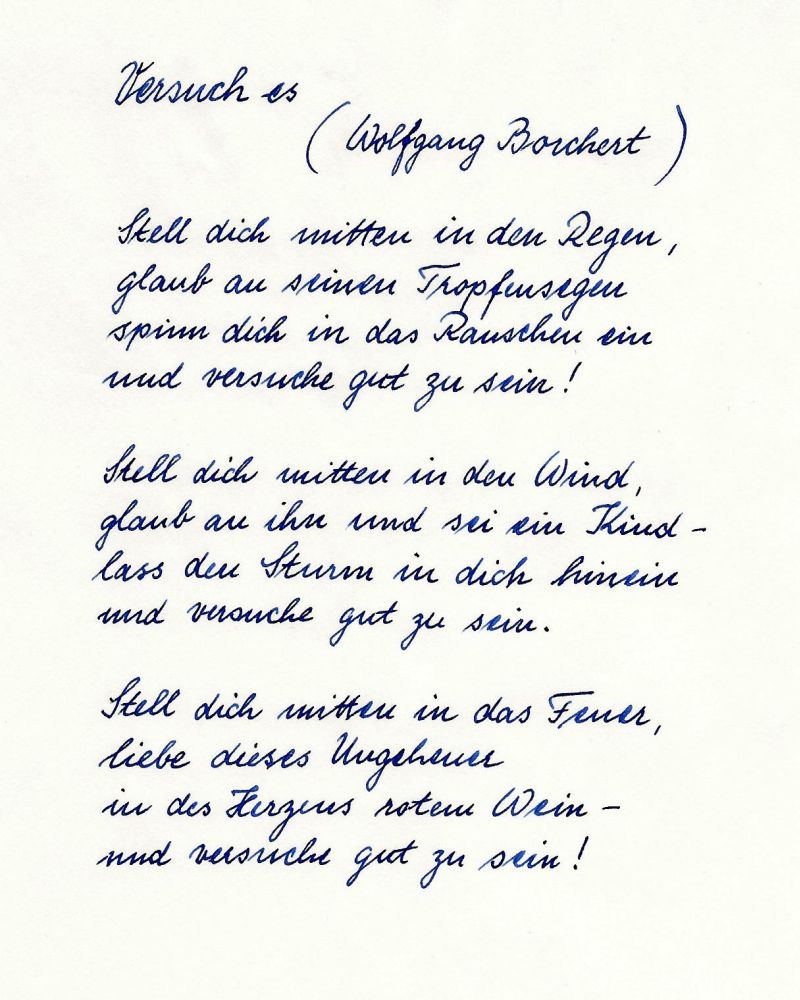 Versuch es
(Wolfgang Borchert)
Stell dich mitten in den Regen,
glaub an seinen Tropfensegen
spinn dich in das Rauschen ein
und versuche gut zu sein!
Stell dich mitten in den Wind,
glaub an ihn und sei ein Kind -
lass den Sturm in dich hinein
und versuche gut zu sein.
Stell dich mitten in das Feuer,
liebe dieses Ungeheuer
in des Herzens rotem Wein -
und versuche gut zu sein!